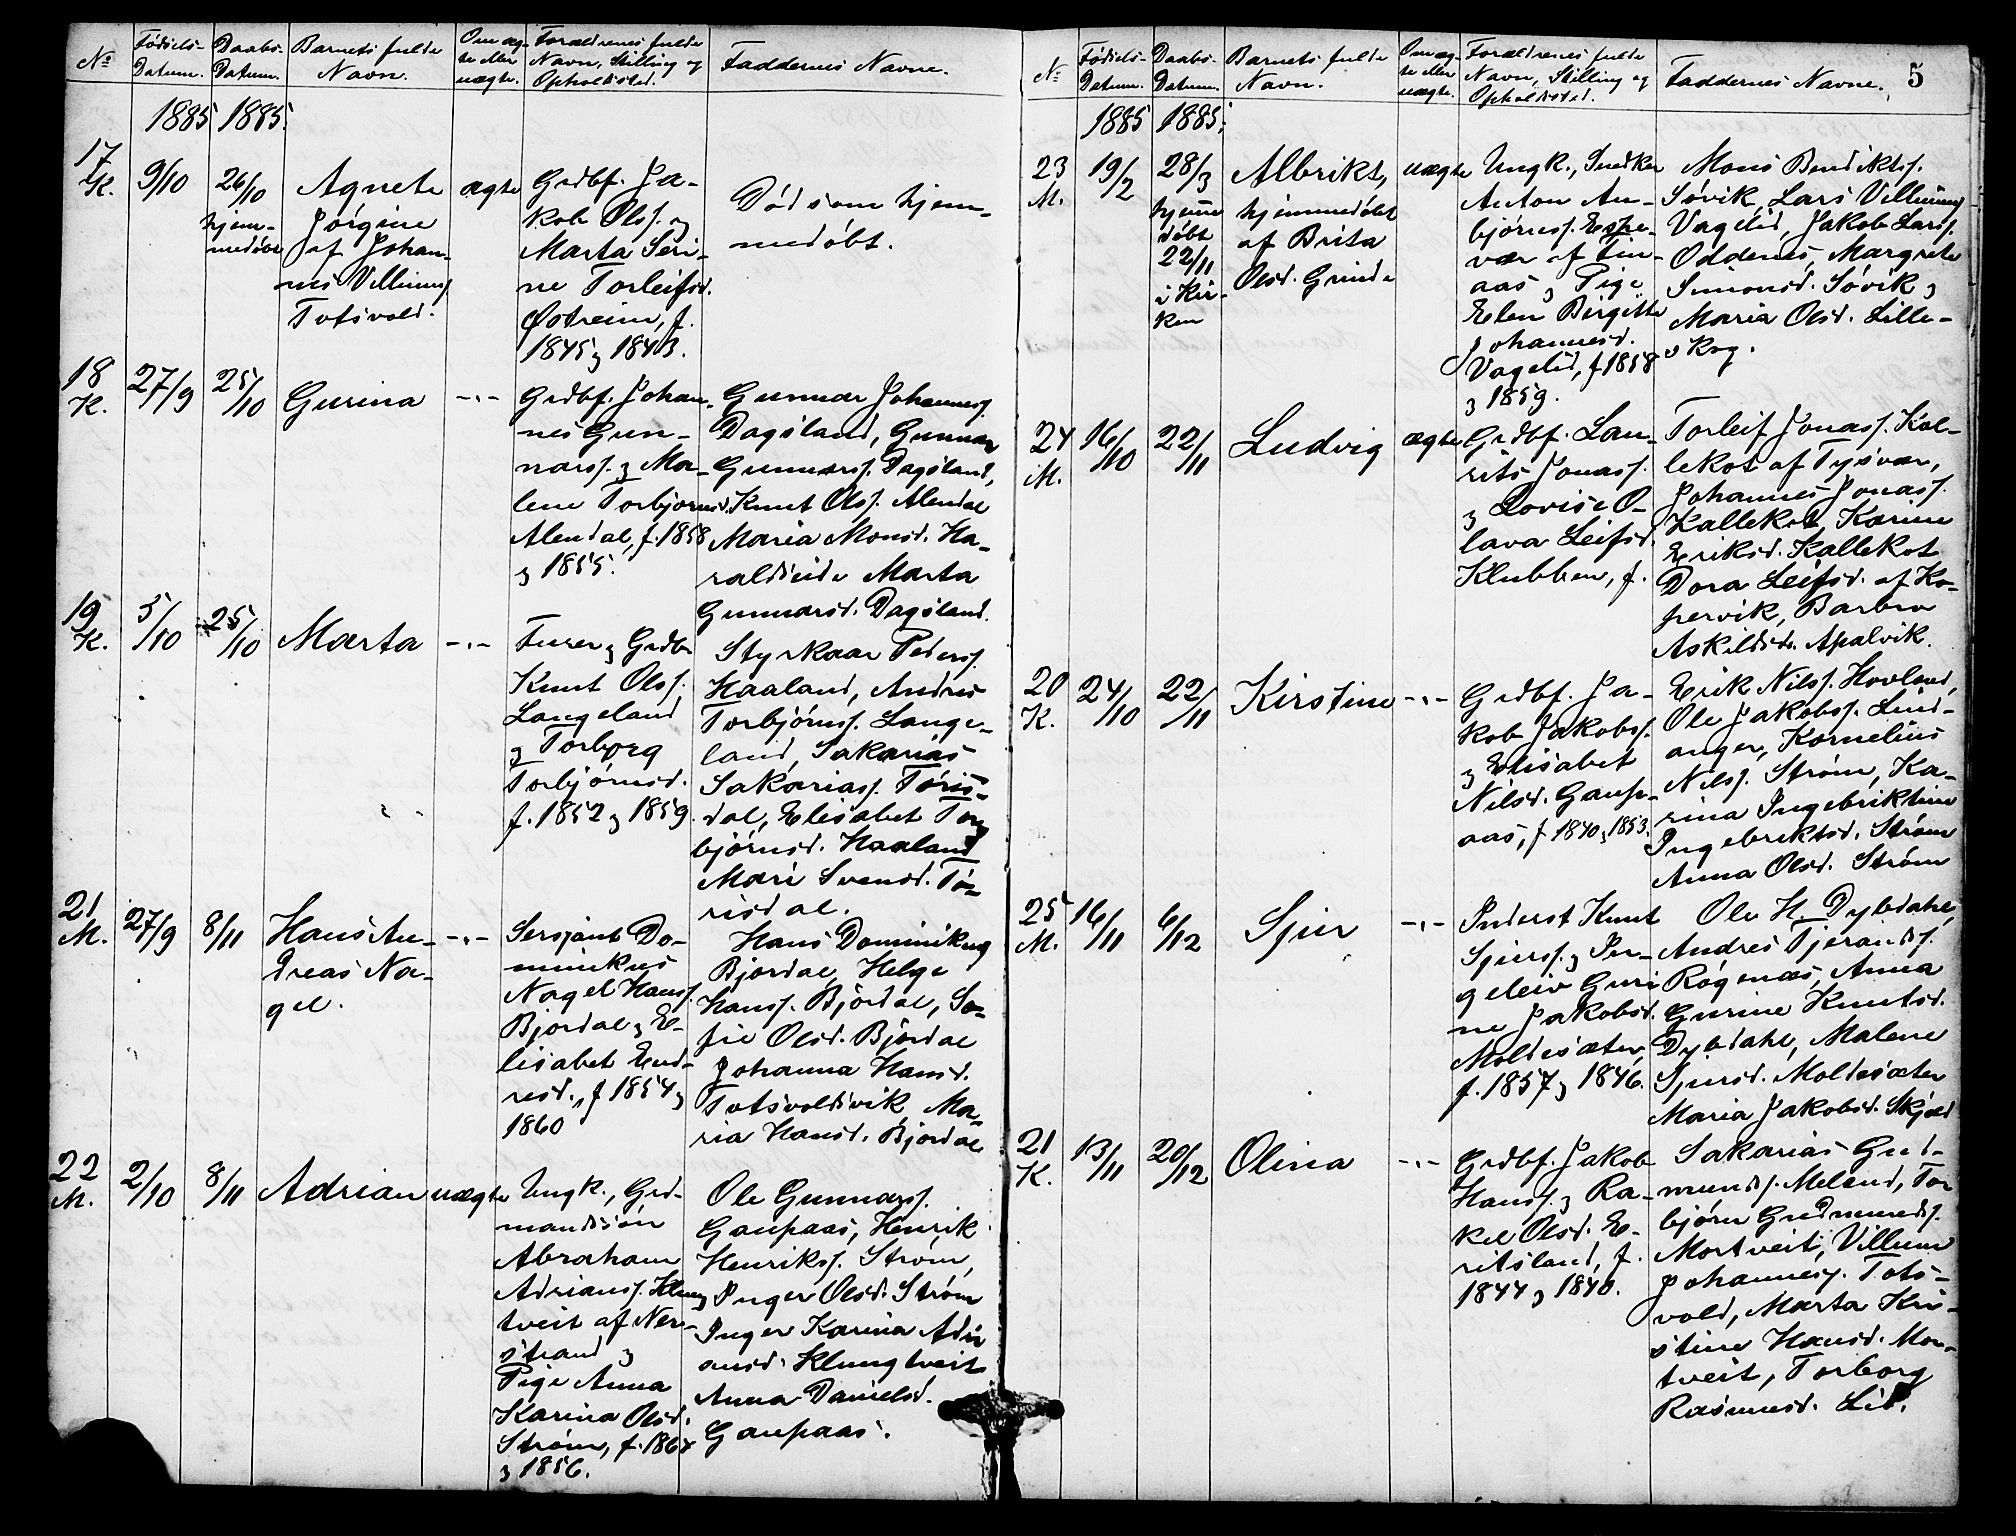 №
Fødsels-
Datum.
Daabs-
Datum.
Barnets fulde
Navn.
Om æg-
te eller
uægte.
Forældrenes fulde
Navn, Stilling og
Opholdssted.
Faddernes Navne.
1885
1885.
17
K.
9/10
26/10
hjem-
medøbt
Agnete
Jörgine
af Johan-
nes Villiumss.
Totsvold.
ægte
Grdbf. Ja-
kob Olss. og
Marta Seri-
ne Torleifsd.
Østreim, f.
1845 og 1843.
Død som hjem-
medøbt.
18
K.
27/9
25/10
Gurina
-"-
Grdbf. Johan-
nes Gun-
narss. og Ma-
lene Torbjørnsd.
Alendal, f. 1858
og 1855.
Gunnar Johanness.
Dagsland, Gunnar
Gunnarss. Dagsland,
Knut Olss. Alendal
Maria Monsd. Ha-
raldseide Marta
Gunnarsd. Dagsland.
19
K.
5/10
25/10
Marta
-"-
Furer og Grdb
Knut Olss.
Langeland
og Torborg
Torbjörnsd.
f. 1852 og 1859.
Styrkaar Peders.
Haaland, Andres
Torbjörnss. Lange-
land, Sakarias
Sakariass. Töris-
dal, Elisabet Tor-
björnsd. Haaland
Mari Svensd. Tö-
risdal.
21
M.
27/9
8/11
Hans An-
dreas Na-
gel.
-"-
Sersjant Do-
minikus
Nagel Hanss.
Bjordal og E-
lisabet End-
resd., f 1854 og
1860
Hans Dominikus
Bjordal, Helge
Hanss. Bjordal, So-
fie Olsd. Bjordal
Johanna Hansd.
Totsvoldsvik, Ma-
ria Hansd. Bjordal
22
M.
2/10
8/11
Adrian
uægte
Ungk., Grd-
mandssön
Abraham
Adrianss. Klung-
tveit af Ner-
strand og
Pige Anna
Karina Olsd.
Strøm, f. 1864
og 1856.
Ole Gunnarss.
Gaupaas, Henrik
Henrikss. Strøm,
Inger Olsd. Strøm
Inger Karina Adri-
ansd. Klungtveit
Anna Danielsd.
Gaupaas.
№
Fødsels-
Datum.
Daabs-
Datum.
Barnets fulde
Navn.
Om æg-
te eller
uægte.
Forældrenes fulde
Navn, Stilling og
Opholdssted.
Faddernes Navne.
5
1885
1885.
23
M.
19/2
28/3
hjemme
døbt
22/11
i Kir-
ken
Albrikt,
hjemmedøbt
af Brita
Olsd. Grinde
uægte
Ungk., Snedker
Anton An-
björnss. Espe-
vær af Fin-
aas og Pige
Elen Birgitte
Johannesd.
Vagelid, f 1858
og 1859.
Mons Bendiktss.
Sövik, Lars Villiumss.
Vagelid, Jakob Larss.
Oddenes, Margrete
Simonsd. Sövik og
Maria Olsd. Lille-
skog.
24
M.
16/10
22/11
Ludvig
ægte
Grdbf. Lau-
rits Jonass.
og Lovise O-
lava Leifsd.
Klubben, f.
Torleif Jonass. Kal-
lekot af Tysvær,
Johannes Jonass.
Kallekot, Karine
Eriksd. Kallekot
Dora Leifsd. af Ko-
pervik, Barbro
Askildsd. Apalvik.
20
K.
24/10
22/11
Kirstine
-"-
Grdbf. Ja-
kob Jakobss.
og Elisabet
Nilsd. Gaup-
aas, f 1840 og 1853.
Erik Nilss. Hovland,
Ole Jakobss. Lind-
anger, Kornelius
Nilss. Strøm, Ka-
rina Ingebriktine
Ingebriktsd. Strøm
Anna Olsd. Strøm
25
M.
16/11
6/12
Sjur
-"-
Inderst Knut
Sjurss. og Per-
geleiv Guri-
ne Jakobsd.
Moldesæter,
f. 1857 og 1846.
Ole H. Dybdahl,
Andres Tjerandss.
Rögenæs, Anna
Gurine Knutsd.
Dybdahl, Malene
Sjursd. Moldesæter
Maria Jakobsd. Skjold
21
K.
13/11
20/12
Olina
-"-
Grdbf. Jakob
Hanss. og Ra-
kel Olsd. E-
ritsland, f.
1844 og 1840.
Sakarias Gud-
mundss. Meland, Tor-
björn Gudmundss.
Mortveit, Villum
Johanness. Tots-
vold, Marta Kri-
stine Hansd. Mor-
tveit, Torborg
Rasmusd. Lid.